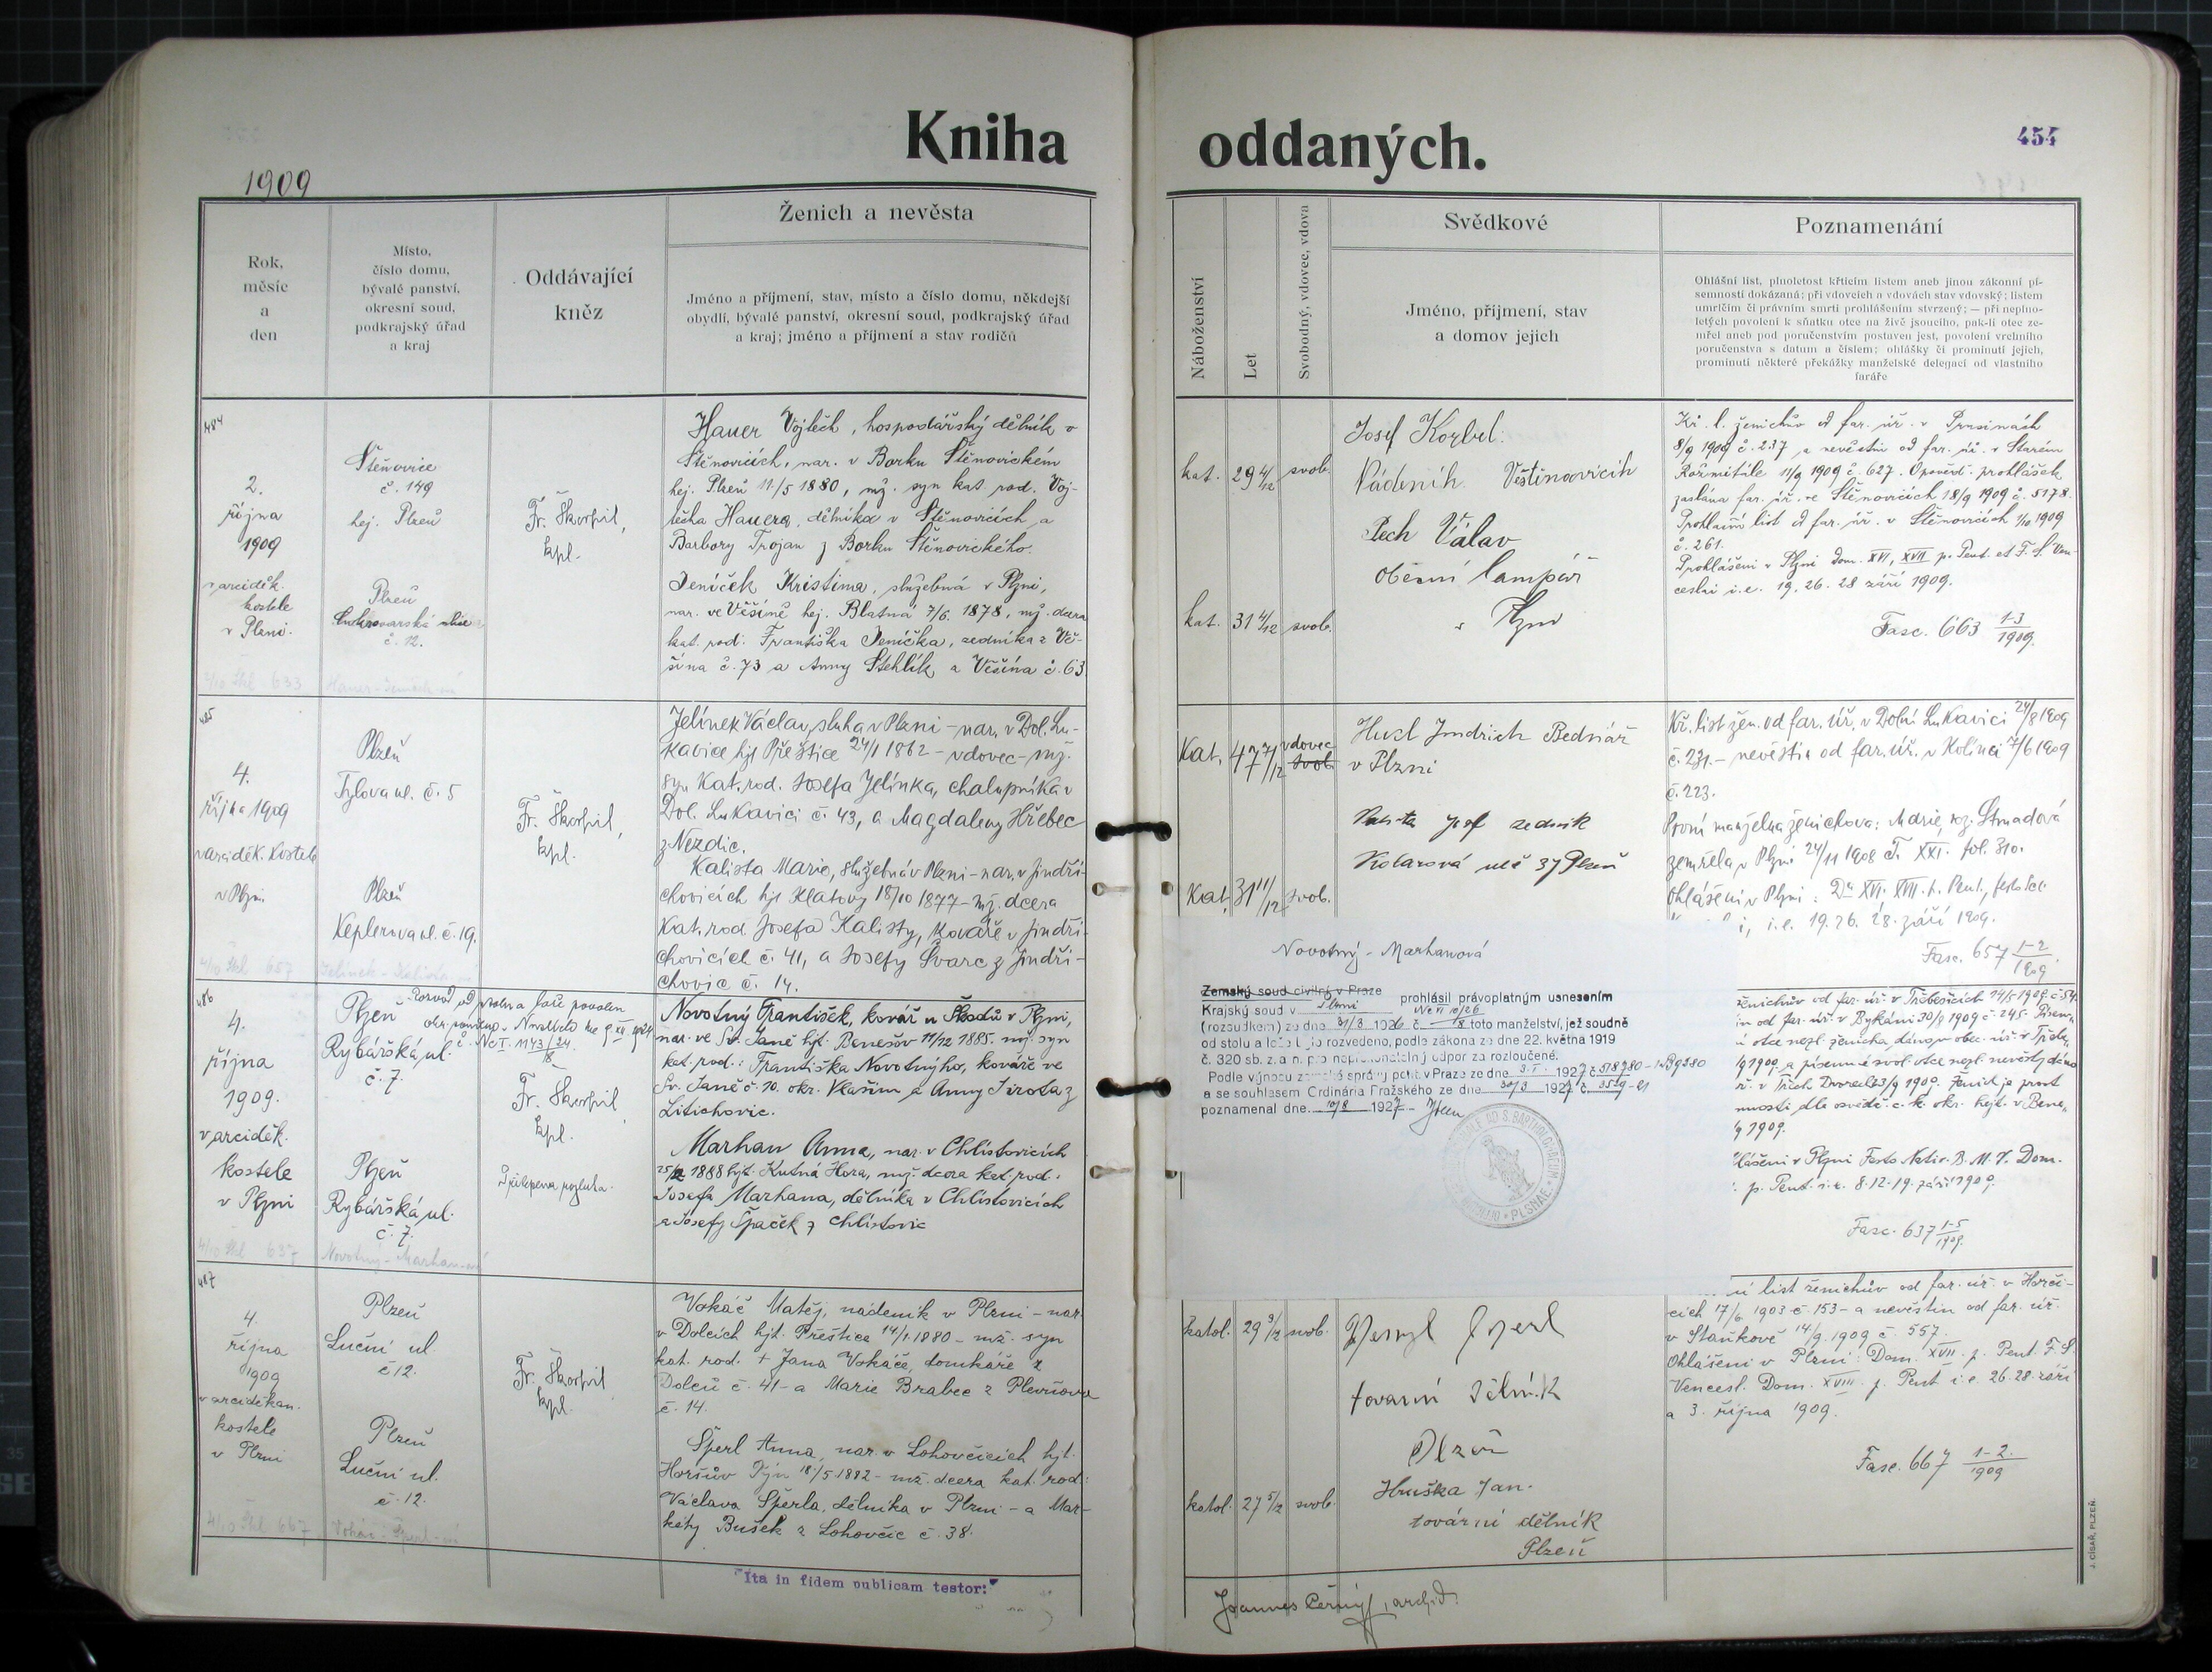 Kniha
oddaných.
454
1909
Rok,
měsíc
a
den
Místo,
číslo domu,
bývalé panství,
okresní soud,
podkrajský úřad
a kraj
Oddávající
kněz
Ženich a nevěsta
Jméno a příjmení, stav, místo a číslo domu, někdejší
obydlí, bývalé panství, okresní soud, podkrajský úřad
a kraj; jméno a příjmení a stav rodičů
Náboženství
Let
Svobodný, vdovec, vdova
Svědkové
Jméno, příjmení, stav
a domov jejich
Poznamenání
Ohlášní list, plnoletost křticím listem aneb jinou zákonní pí-
semností dokázaná; při vdovcích a vdovách stav vdovský; listem
umrlčím či právním smrti prohlášením stvrzený; — při neplno-
letých povolení k sňatku otce na živě jsoucího, pak-li otec ze-
mřel aneb pod poručenstvím postaven jest, povolení vrchního
poručenstva s datum a číslem; ohlášky či prominutí jejich,
prominutí některé překážky manželské delegací od vlastního
faráře
484
2.
října
1909
v arciděk.
kostele
v Plzni.
Štěnovice
č. 149
hej. Plzeň
Plzeň
č. 12.
Fr. Škorpil,
kpl.
Hauer Vojtěch, hospodářský dělník v
Štěnovicích, nar. v Borku Štěnovickém
hej. Plzeň 11/5 1880, mž. syn kat. rod. Voj-
těcha Hauera, dělníka v Štěnovicích a
Barbory Trojan z Borku Štěnovického.
Jeníček Kristina, služebná v Plzni,
nar. ve Věšíně hej. Blatná 7/6 1878, mž. dcera
kat. rod. Františka Jeníčka, zedníka z Vě-
šína č. 73 a Anny Stehlík z Věšína č. 63.
kat. 29 4/12 svob.
kat. 31 4/12 svob.
Josef Korbel
Nádeník Veštěnovicích
Pech Válav
obecní lampář
v Plzni
Kř. l. ženichův od far. úř. v Prusinách
8/9 1909 č. 237 a nevěstin od far. úř. v Starém
Rožmitále 11/9 1909 č. 627. Opověd. prohlášek
zaslána far. úř. ve Štěnovicích 18/9 1909 č. 5178.
Prohlášní list od far. úř. v Štěnovicích 1/10 1909
č. 261.
Prohlášeni v Plzni Dom. XVI, XVII p. Pent. et F. S. Ven-
ceslai i. e. 19. 26. 28 září 1909.
Fasc. 663 1-3/1909.
485
4.
října 1909
v arciděk. kostele
v Plzni
Plzeň
Tylova ul. č. 5
Plzeň
Keplerova ul. č. 19.
Fr. Škorpil,
kpl.
Jelínek Václav, sluha v Plzni – nar. v Dol. Lu-
kavice hjt Přeštice 24/1 1862 – vdovec – mž.
syn kat. rod. Josefa Jelínka, chalupníka v
Dol. Lukavici č. 43, a Magdaleny Hřebec
z Nezdic.
Kalista Marie, služebná v Plzni – nar. v Jindři-
chovicích hjt Klatovy 18/10 1877 – mž. dcera
kat. rod. Josefa Kalisty, kováře v Jindři-
chovicích č. 41, a Josefy Švarc z Jindři-
chovic č. 14.
Kat. 47 7/12 vdovec svob.
Kat. 31 11/12 svob.
Husl Jindrich Bednář
v Plzni
Josef zedník
Kolarová ulč 37 Plzeň
Kř. list žen. od far. úř. v Dolní Lukavici 24/8 1909
č. 231. – nevěstin od far. úř. v Kolinci 7/6 1909
č. 223.
První manželka ženichova: Marie, roz. Strnadová
zemřela v Plzni 24/11 1908 T. XXI. fol. 310.
Ohlášeni v Plzni: Dom XVI. XVII. p. Pent.,
i. e. 19. 26. 28. září 1909.
Fasc. 657 1-2/1909.
486
4.
října
1909.
v arciděk.
kostele
v Plzni
Plzeň
Rybářská ul.
č. 7.
Plzeň
Rybářská ul.
č. 7.
Rozvod od stolu a lože povolen
č. Nc I. 1143/24
Fr. Škorpil,
kpl.
Novotný František, kovář u Škodů v Plzni,
nar. ve Sv. Janě hjt. Benešov 11/12 1885. mž. syn
kat. rod.: Františka Novotného, kováře ve
Sv. Janě č. 10. okr. Vlašim a Anny Sirota z
Litichovic.
Marhan Anna, nar. v Chlístovicích
25/12 1888 hjt. Kutná Hora, mž. dcera kat. rod.:
Josefa Marhana, dělníka v Chlístovicích
a Josefy Špaček z Chlístovic
Novotný - Marhanová
Zemský soud civilní v Praze
Krajský soud v Plzni prohlásil právoplatným usnesením
(rozsudkem) ze dne 31/3 1926 č. Nc VI 10/26/18 toto manželství, jež soudně
od stolu a lože bylo rozvedeno, podle zákona ze dne 22. května 1919
č. 320 sb. z. a n. pro nepřekonatelný odpor za rozloučené.
Podle výnosu zemské správy polit. v Praze ze dne 3.I. 1927
a se souhlasem Ordinária Pražského ze dne 30/3 1927 č.
poznamenal dne 10/8 1927
ženichův od far. úř. v Třebešicích 14/5 1909. č 54.
in od far. úř. v Bykáni 30/8 1909 č. 245.
1909.
hlášeni v Plzni Festo Nativ. B. M. V. Dom.
p. Pent. i. e. 8. 12. 19. září 1909.
Fasc. 637 1-5/1909.
487
4.
října
1909
v arciděkan.
kostele
v Plzni
Plzeň
Luční ul.
č 12.
Plzeň
Luční ul.
č. 12.
Fr. Škorpil
kpl.
Vokáč Matěj, nádeník v Plzni – nar.
v Dolcích hjt. Přeštice 14/1 1880 – mž. syn
kat. rod. + Jana Vokáče, domkáře z
Dolců č. 41 – a Marie Brabec z Plevňova
č. 14.
Šperl Anna, nar. v Lohovčicích hjt.
Horšův Týn 18/5 1882 – mž. dcera kat. rod:
Václava Šperla, dělníka v Plzni – a Mar-
kéty Bušek z Lohovčic č. 38.
katol. 29 9/12 svob.
katol. 27 5/12 svob.
tovarní dělnik
Plzeň
Hruška Jan.
tovární dělník
Plzeň
ní list ženichův od far. úř. v Horči-
cích 17/6 1903 č. 153 – a nevěstin od far. úř.
v Staňkově 14/9 1909 č. 557.
Ohlášeni v Plzni: Dom. XVII. p. Pent. F. S.
Vencesl. Dom. XVIII. p. Pent i. e. 26. 28. září
a 3. října 1909.
Fasc. 667 1-2/1909
"Ita in fidem publicam testor:"
Joannes Černý, archid.
J. CÍSAŘ, PLZEŇ.